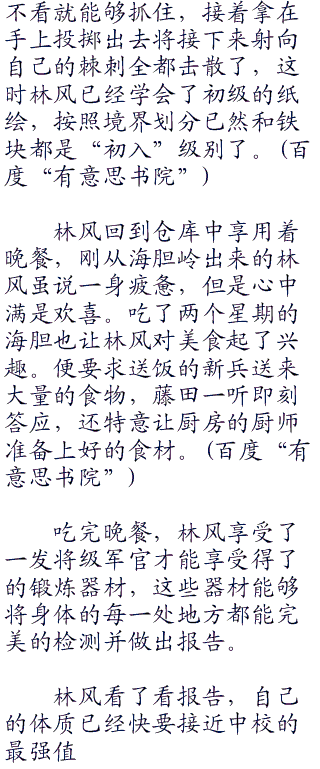 不看就能够抓住，接着拿在
手上投掷出去将接下来射向
自己的棘刺全都击散了，这
时林风已经学会了初级的纸
绘，按照境界划分已然和铁
块都是“初入”级别了。(百
度“有意思书院”)
林风回到仓库中享用着
晚餐，刚从海胆岭出来的林
风虽说一身疲惫，但是心中
满是欢喜。吃了两个星期的
海胆也让林风对美食起了兴
趣。便要求送饭的新兵送来
大量的食物，藤田一听即刻
答应，还特意让厨房的厨师
准备上好的食材。(百度“有
意思书院”)
吃完晚餐，林风享受了
一发将级军官才能享受得了
的锻炼器材，这些器材能够
将身体的每一处地方都能完
美的检测并做出报告。
林风看了看报告，自己
的体质已经快要接近中校的
最强值